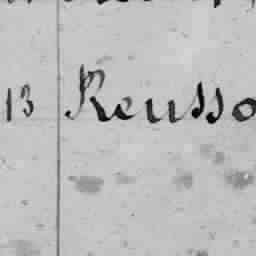 13 Reusso